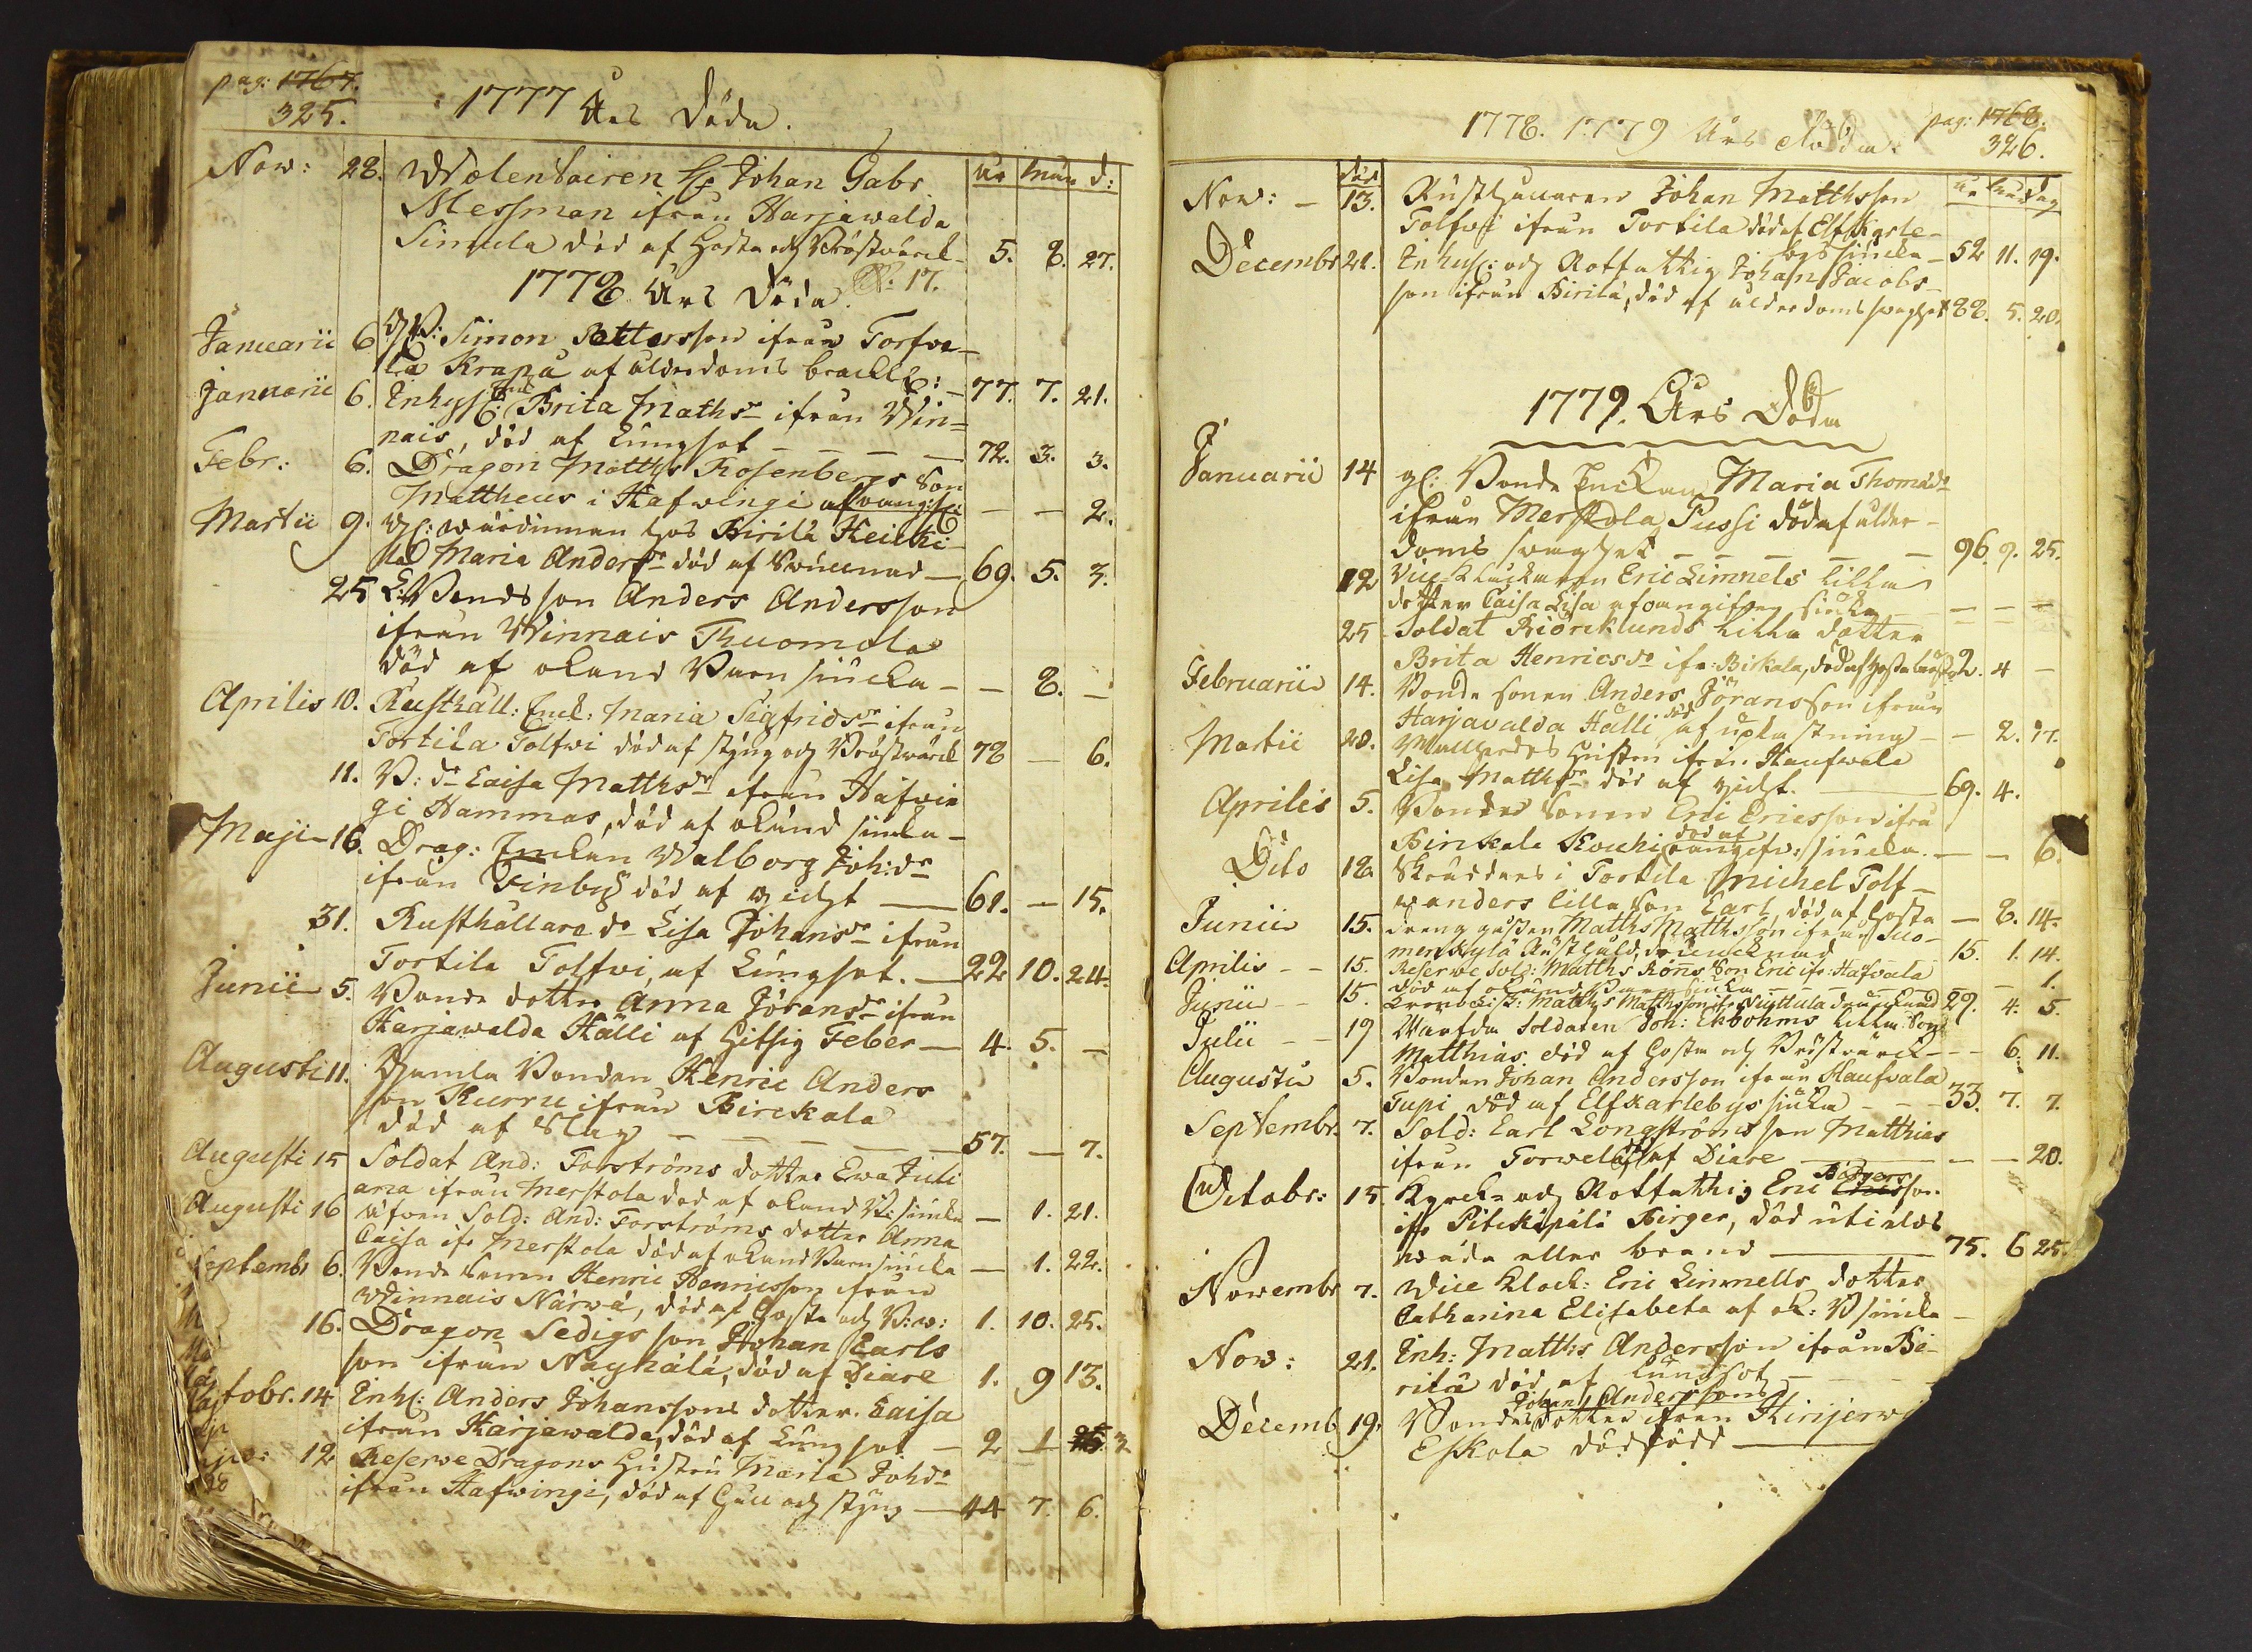 pag: 1767.
325.
1777 Års Döda.
år mån d:
Now: 28. Wolentairen H: Johan Gabr.
Messman ifrån Harjawalda
Simula död af Hosta och Bröstvärck 5. 8. 27.
1778 Års Döda N: 17.
Januarii 6 Simon Pettersson ifrån Torfve-
la Krapa af ålderdoms brackl: 77. 7. 21.
Januarii 6. Inhys: Enk: Brita Mathsdr ifrån Win-
nais, död af Lungsot 72. 3. 3.
Febr: 6. Dragon Matths Rosenbergs Son
Mattheus i Hafwingi - - 2.
Martii 9. gl: wärdinnan hos Pirilä Heicki-
lä Maria Andersdr död af 69. 5. 3.
25 Bondsson Anders Andersson
ifrån Winnais Thuomola
död af okänd Barn siucka - 8. -
Aprilis 10. Rusthåll: Enck: Maria Sigfridsdr ifrån
Tortila Tolfwi död af styng och Bröstwärck 78 - 6.
11. B: dr Caisa Matthsdr ifrån Hafwin
gi Hammas, död af okänd siucka -
Maji 16. Drag: Enckan Walborg Joh:dr
ifrån Finby död af 61. - 15.
31. Rusthållare dr Lisa Johansdr ifrån
Tortila Tolfwi, af Lungsot. 22 10. 24.
Junii 5. Bonde dotter Anna Jöransdr ifrån
Harjawalda Hälli af Hitsig Feber 4. 5. -
Augusti 11. Gamla Bonden Henric Anders
son Kurru ifrån Birckala
död af Slag 57. - 7.
Augusti 15 Soldat And: Forströms dotter Ewa Juli
ana ifrån Merstola död af okänd B: siucka - 1. 21.
Augusti 16 äfven Sold: And: Forströms dotter Anna
Caisa ifr Merstola död af okänd Barn siucka - 1. 22.
Septembr 6. Bonde Sonen Henric Henricsson ifrån
Winnais Närwä, död af Hosta och B:w: 1. 10. 25.
16. Dragon Sedigs son Johan Carls
son ifrån Nayhälä, död af Diare 1. 9 13.
tobr. 14 Inh: Anders Johanssons dotter Caisa
ifrån Harjawalda, död af Lungsot 2 1 3
12 Reserve Dragons Hustru Maria Johdr
ifrån Hafwingi, död af och styng 44 7. 6.
1778. 1779 Års Döda.
pag: 1768.
326.
död
år mån dag
Now: - 13. Rusthållaren Johan Matthsson
Tolfwi ifrån Tortila död af Elfkarle-
bys siucka 52 11. 19.
Decembr 21. Inhys: och Rotfattig Johan Jacobs-
son ifrån Birilä, död af ålderdoms swaghet 88. 5. 20.
1779. Års Döda
Januarii 14 gl: Bonde Enckan Maria Thomædr
ifrån Merstola Pussi död af ålder-
doms swaghet 96. 9. 25.
12 Vice Kluckaren Eric Limnels lilla
dotter Caisa Lisa af siucka - - -
25 Soldat Biörcklunds lilla dotter
Brita Henricsdr ifr: Birkala, död af 2. 4 -
Februarii 14. Bonde sonen Anders Jöransson ifrån
Harjavalda Hälli död af - 2. 17.
Martii 28. Hustru ifrån Kaufwala
Lisa Matthsdr död af 69. 4.
Aprilis 5. Bondes Sonen Eric Ericsson ifrå
Birkala Kouhi död af siucka - - 6.
Dito 18. Skräddars i Tortila Michel Tolf-
wanders lilla Son Carl, död af Hosta - 8. 14.
Junii 15. dräng gåssen Matths Matthsson ifrån Suo-
menkylä Rusthåld, druncknad 15. 1. 14.
Aprilis - - 15. Reserve Sold: Matths Röns Son Eric ifr: Hafvala
död af okänd barn siucka - - 1.
Junii - - 15. Matths Mathsson ifr drunknad 29. 4. 5.
Julii - - 19 Soldaten Joh: Ekbohms lilla Son
Matthias död af Hosta och Bröstvärck - 6. 11.
Augusti 5. Bonden Johan Andersson ifrån Kaufvala
Tupi död af Elfkarlebys siucka 33. 7. 7.
Septembr. 7. Sold: Carl Longströms son Matthias
ifrån Torwela död af Diare - - 20.
Octobr: 15. Kyrck- och Rotfattig Eric Birgers son
ifr Pitkäpälä Birger, död uti elds
wåda eller brand 75. 6 25.
Novembr 7. Vice Klock: Eric Limnells dotter
Catharina Elisabeta af ok: B siucka -
Now: 21. Inh: Matths Andersson ifrån Bi-
rilä död af Lungsot
Decemb 19. Bondes Johan Anderssons dotter ifrån Kinjerw
Eskola dödfödd